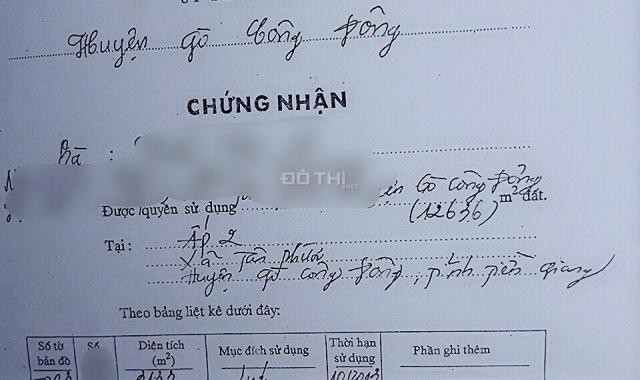 Huyện Gò Công Đông
CHỨNG NHẬN
Bà :
ĐÔ THỊ
Gò Công Đông
Được quyền sử dụng (12636) m² đất.
Tại : Ấp 2
Xã Tân Phước
Huyện Gò Công Đông, Tỉnh Tiền Giang
Theo bảng liệt kê dưới đây:
Số tờ bản đồ Số Diện tích (m²) Mục đích sử dụng Thời hạn sử dụng Phần ghi thêm